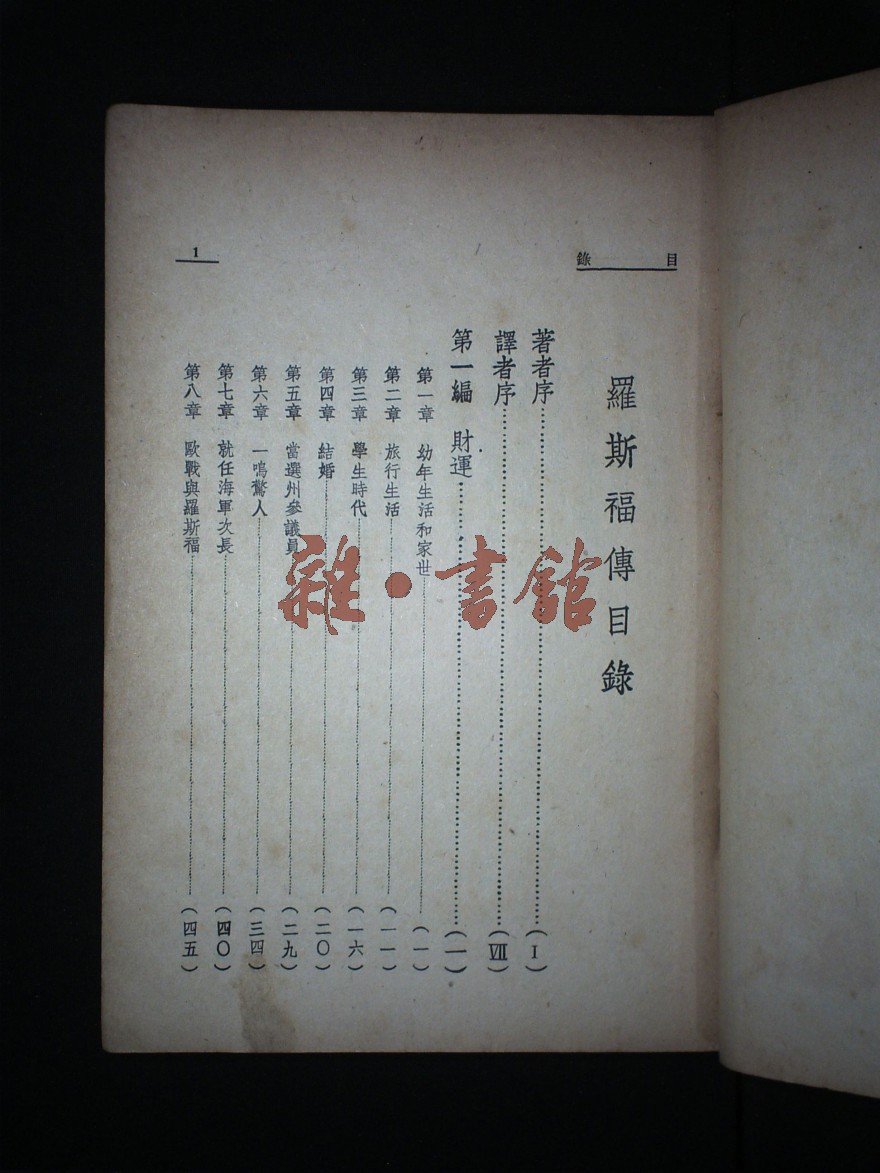 目錄
1
羅斯福傳目錄
著者序……(I)
譯者序……(VII)
第一編 財運……(一)
第一章 幼年生活和家世……(一)
第二章 旅行生活……(一一)
第三章 學生時代……(一六)
第四章 結婚……(二〇)
第五章 當選州參議員……(二九)
第六章 一鳴驚人……(三四)
第七章 就任海軍次長……(四〇)
第八章 歐戰與羅斯福……(四五)
雜·書館